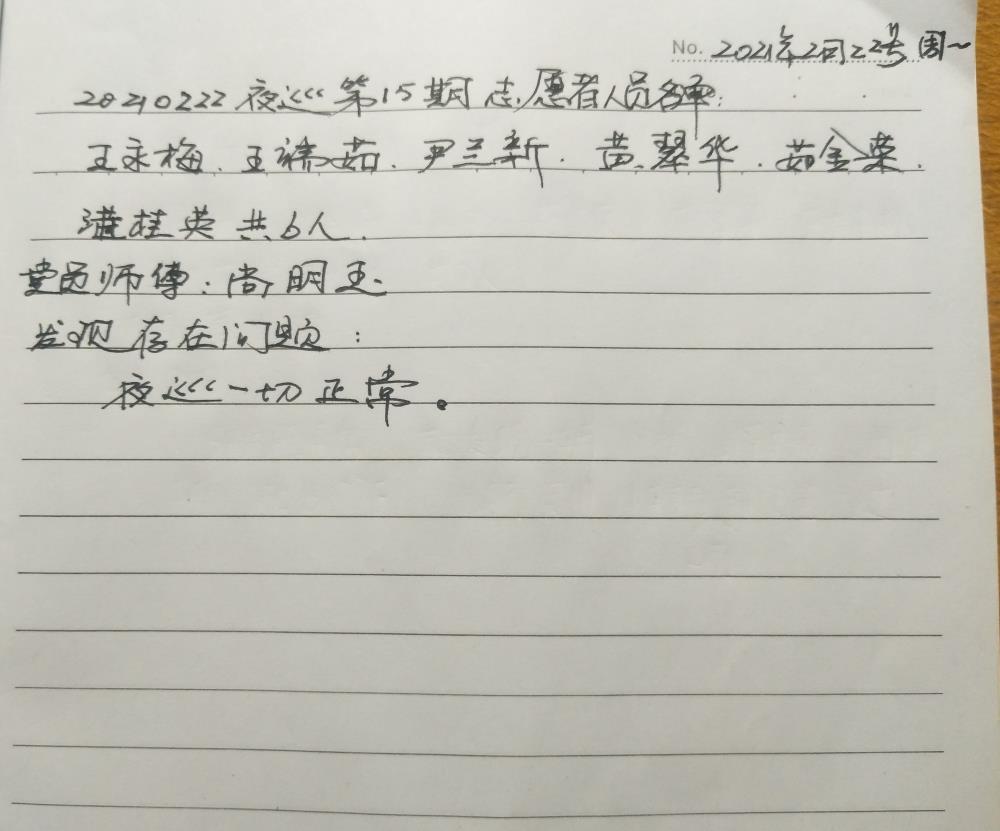 No. 2021年2月22号周一
20210222夜巡第15期志愿者人员名单:
王永梅.王绣茹.尹兰新.黄翠华.茹金荣.
桂英共6人.
党员师傅:尚明玉.
发现存在问题:
夜巡一切正常。